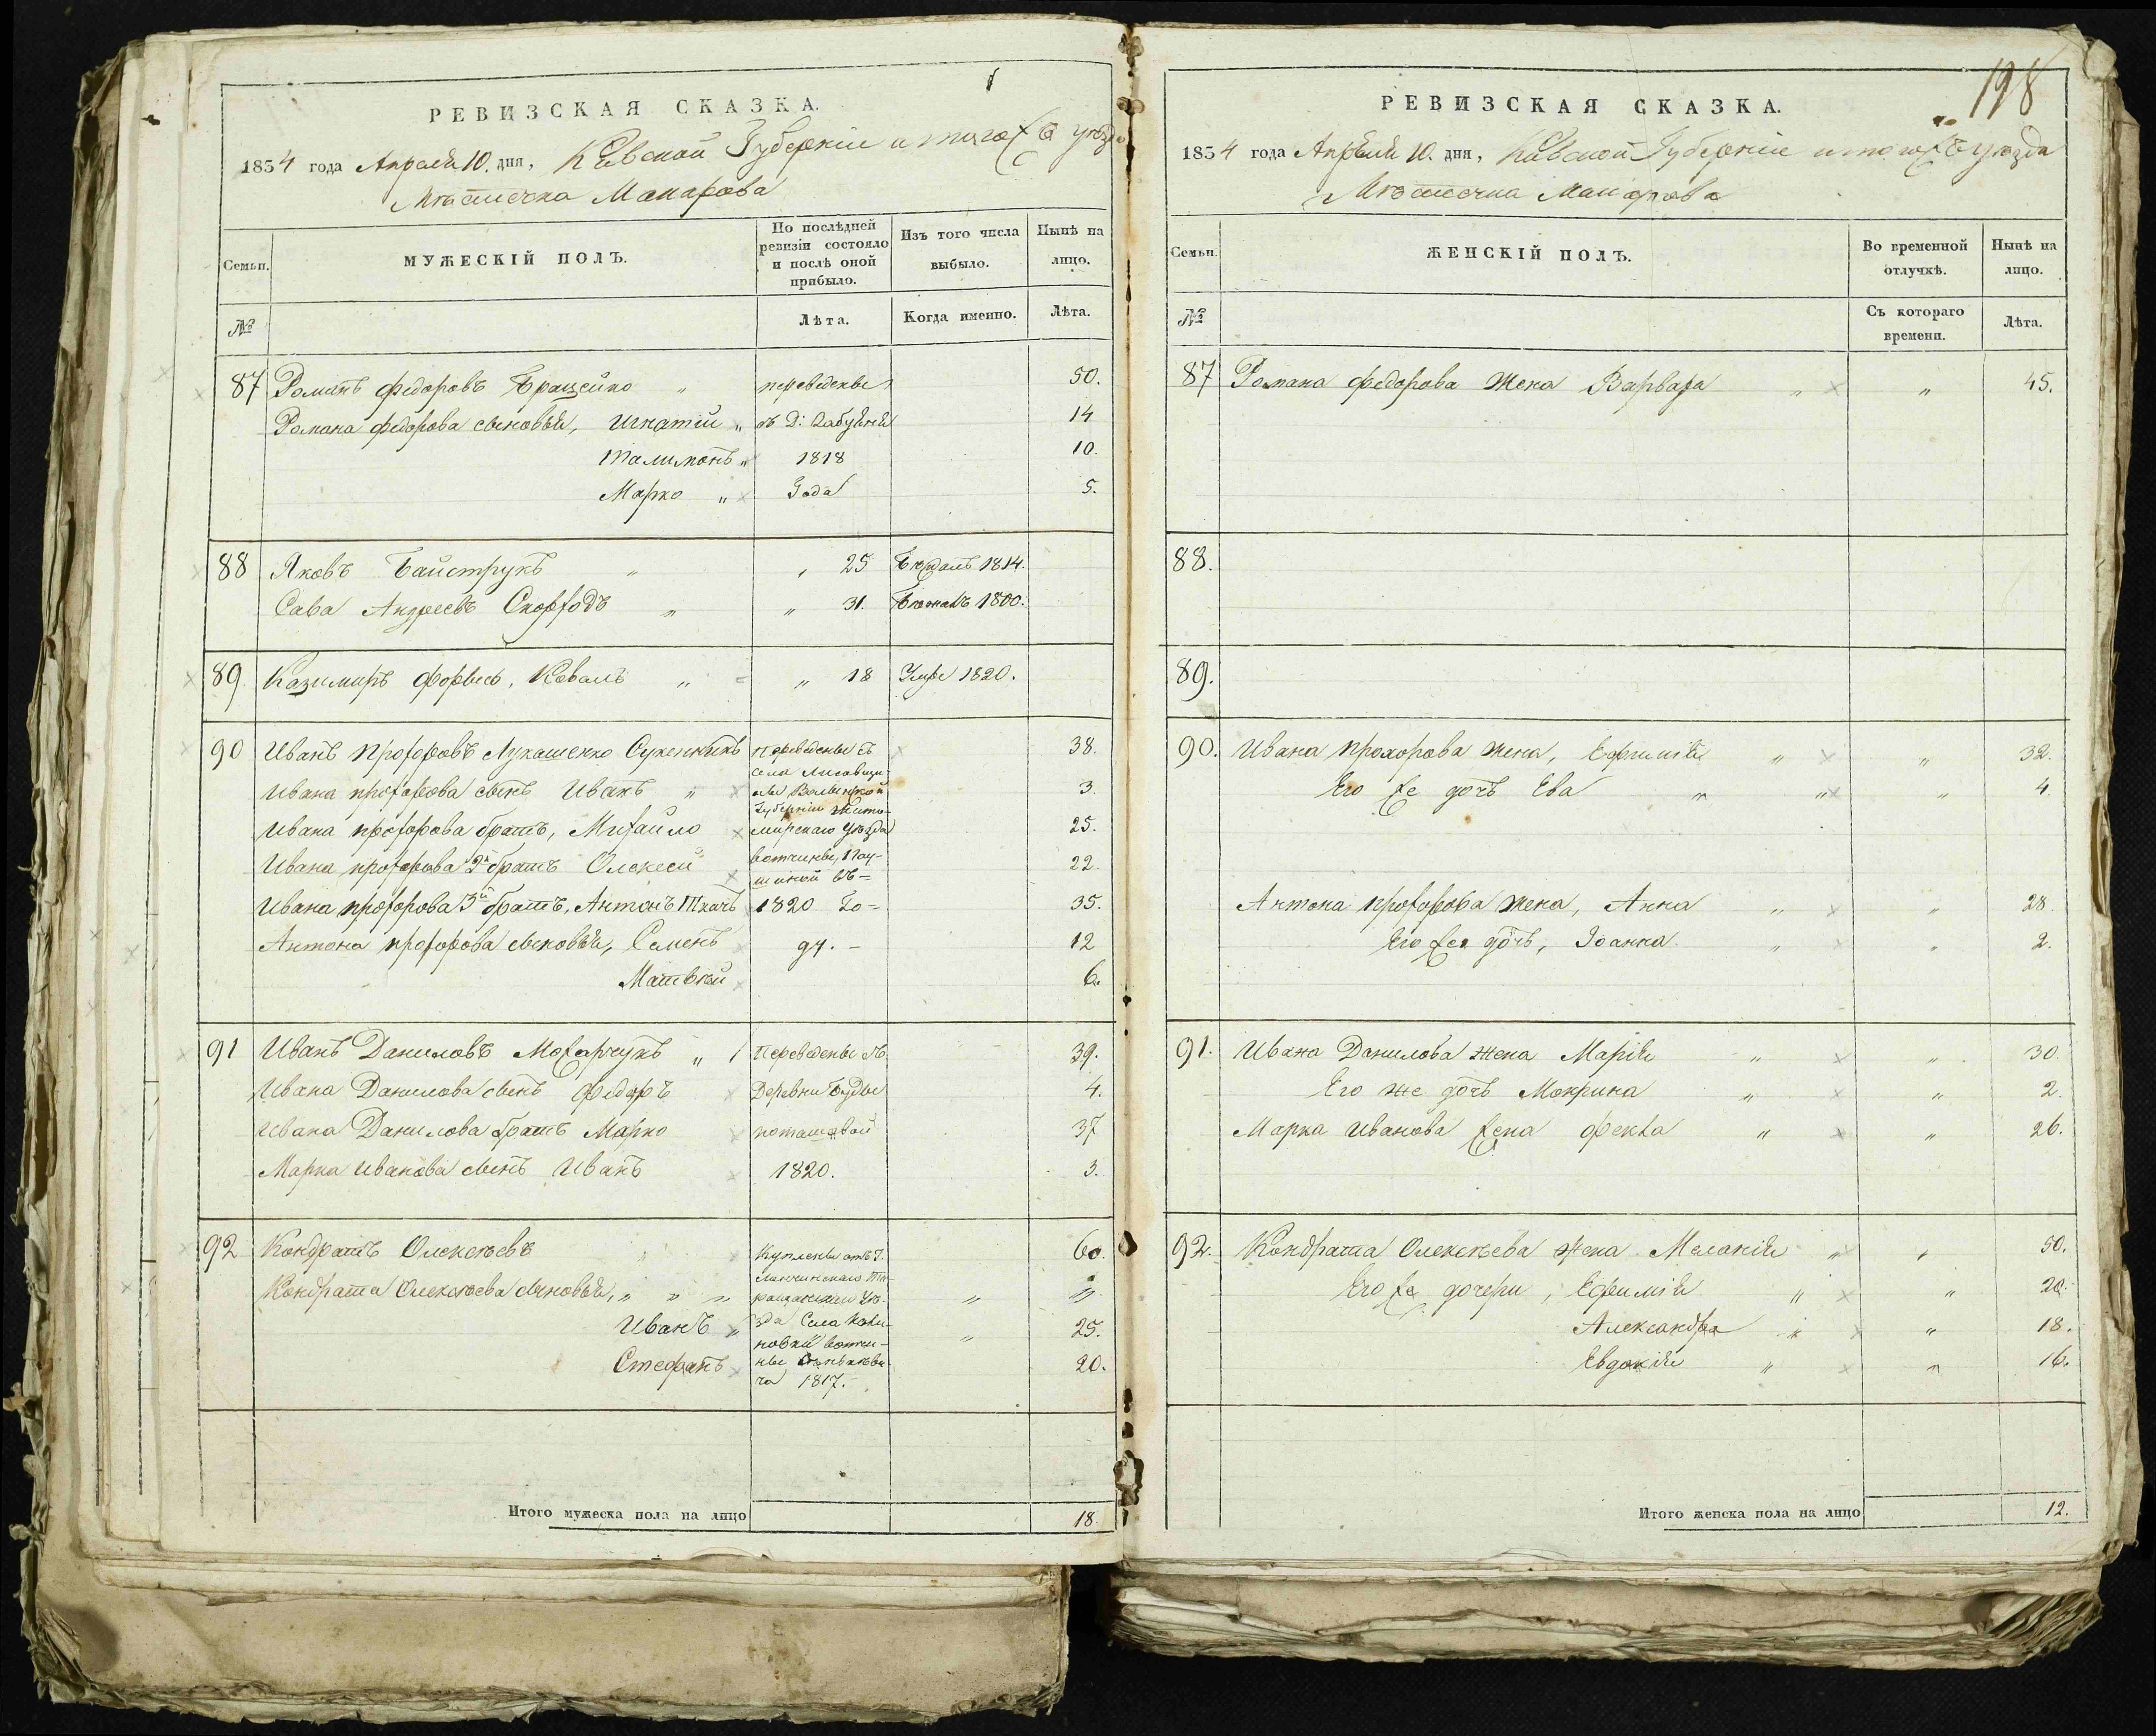 РЕВИЗСКАЯ СКАЗКА.
1834 года Апреля 10. дня, Кіевской Губерніи и тогожъ уѣзда
Мѣстечка Макарова
Семьи.
МУЖЕСКІЙ ПОЛЪ.
По послѣдней ревизіи состояло и послѣ оной прибыло.
Изъ того числа выбыло.
Нынѣ на лицо.
№
Лѣта.
Когда именно.
Лѣта.
87 Романъ Федоровъ " переведены 50.
Романа федорова сыновья, Игнатій " 14
Талимонъ " 1818 10.
Марко " Года 5.
88 Яковъ Байструкъ " " 25 1814.
Сава Андреевъ " " 31. Бѣжалъ 1800.
89 Казимиръ Коваль " " 18 Умре 1820.
90 Иванъ Прохоровъ Лукашенко переведены съ 38.
села
Ивана прохорова сынъ Иванъ " Волынской 3.
Губерніи Жито-
Ивана прохорова братъ, Михайло мирскаго уѣзда 25.
Ивана прохорова 2й братъ Олексей вотчины 22.
въ =
Ивана прохорова 3й братъ, Антонъ Ткачъ 1820 Го= 35.
Антона прохорова сыновья, Семенъ ду. - 12
Матвѣй 6.
91 Иванъ Даниловъ Мохарчукъ " Переведены съ 39.
Ивана Данилова сынъ Федоръ Деревни Буды 4.
Ивана Данилова братъ Марко поташевой 37
Марка Иванова сынъ Иванъ 1820. 3.
92 Кондратъ Олексѣевъ Куплены отъ Г. 60.
Кондрата Олексѣева сыновья, " " " "
уѣ-
Иванъ " зда Села " 25.
новки вотчи-
Стефанъ ны 20.
ча 1817.
Итого мужеска пола на лицо 18.
198
РЕВИЗСКАЯ СКАЗКА.
1834 года Апреля 10. дня, Кіевской Губерніи и тогожъ уѣзда
Мѣстечка Макарова
Семьи.
ЖЕНСКІЙ ПОЛЪ.
Во временной отлучкѣ.
Нынѣ на лицо.
№
Съ котораго времени.
Лѣта.
87 Романа федорова жена Варвара " " 45.
88.
89.
90. Ивана прохорова жена, Ефимія " " 32.
Его же дочь Ева " " " 4.
Антона прохорова жена, Анна " " 28.
Его же дочь, Іоанна " " 2.
91. Ивана Данилова жена Марія " " 30.
Его же дочь Мокрина " " 2.
Марка Иванова жена Фекла " " 26.
92. Кондрата Олексѣева жена Меланія " " 50.
Его же дочери, Ефимія " " 20.
Александра " " 18.
Евдокія " " 16.
Итого женска пола на лицо 12.